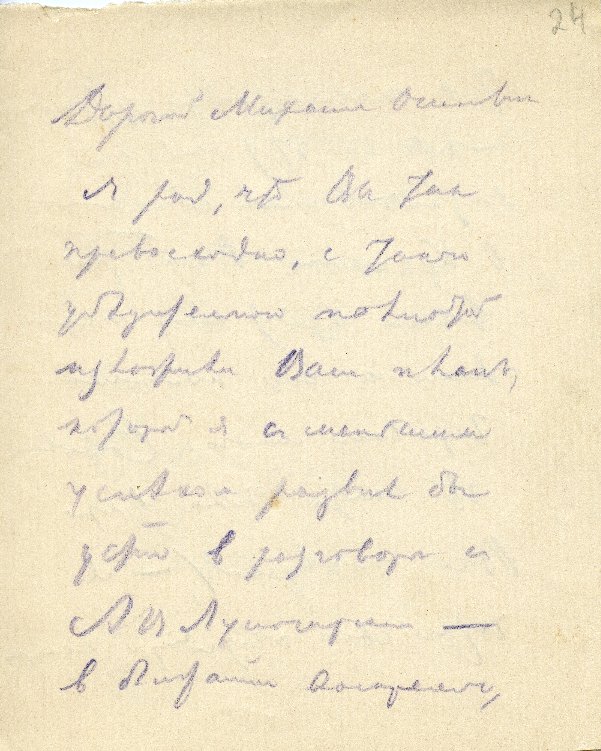 24
Дорогой Михаил Осипович
Я рад, что Вы так
превосходно, с такой
убедительною полнотой
изложили Ваш план,
который я с меньшим
успехом развил бы
устно в разговоре с
А В Луначарским —
в